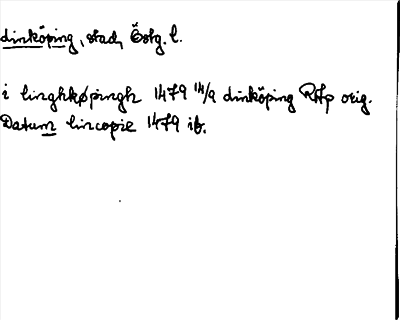 Linköping, stad, Östg. l.
i linghkøpingh 1479 14/9 Linköping RAp orig.
Datum lincopie 1479 ib.